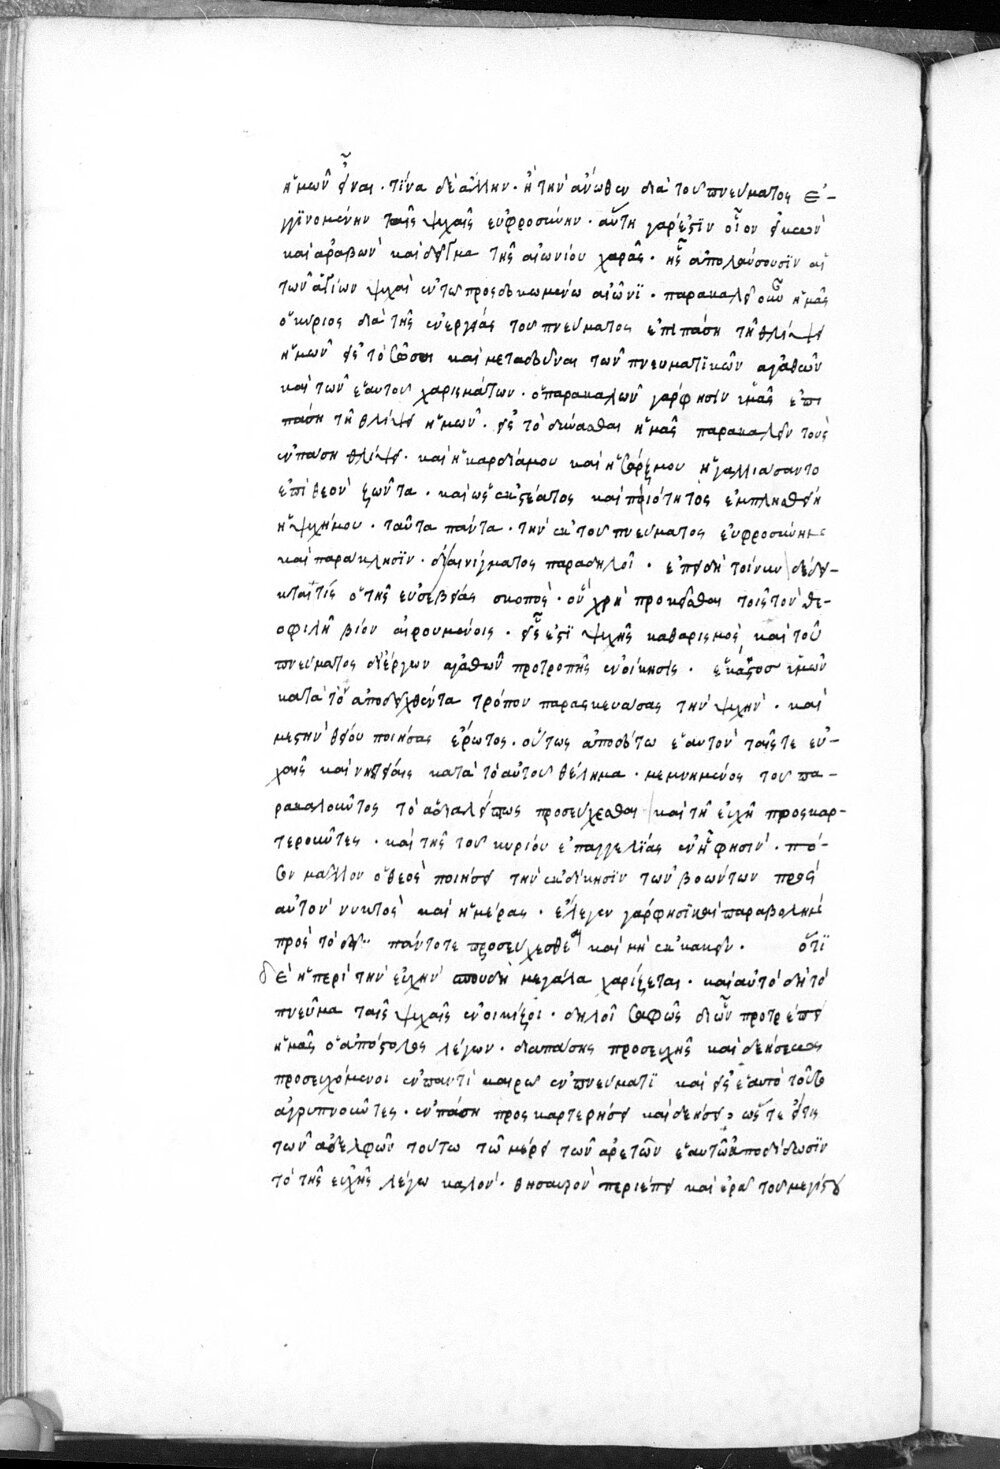 ἡμῶν εἶναι · τίνα δὲ ἄλλην · ἢ τὴν ἄνωθεν διὰ τοῦ πνεύματος ἐ-
γγϊνομένην ταῖς ψυχαῖς εὐφροσύνην · αὕτη γάρ ἐστϊν οἷον εἰκὼν
καὶ ἀραβὼν καὶ δεῖγμα τῆς αἰωνίου χαρᾶς · ἧς ἀπολαύσουσϊν αἱ
τῶν ἁγίων ψυχαὶ ἐν τῶ προσδοκωμένω αἰῶνϊ · παρακαλεῖ οὖν ἡμᾶς
ὁ κύριος διὰ τῆς ἐνεργείας τοῦ πνεύματος ἐπὶ πάση τῆ θλίψει
ἡμῶν εἰς τὸ σῶσαι καὶ μεταδοῦναι τῶν πνευματϊκῶν ἀγαθῶν
καὶ τῶν ἑαυτοῦ χαρισμάτων · ὁ παρακαλῶν γάρ φησϊν ἡμᾶς ἐπὶ
πάση τῆ θλίψει ἡμῶν · εἰς τὸ δύνασθαι ἡμᾶς παρακαλεῖν τοὺς
ἐν πάση θλίψει · καὶ ἡ καρδία μου καὶ ἡ σάρξ μου ἠγαλλιάσαντο
ἐπὶ θεὸν ζῶντα · καὶ ὡς ἐκ στέατος καὶ πιότητος ἐμπλησθείη
ἡ ψυχή μου · ταῦτα πάντα · τὴν ἐκ τοῦ πνεύματος εὐφροσύνην
καὶ παράκλησϊν · δι' αἰνίγματος παραδηλοῖ · ἐπειδὴ τοίνυν δέδει-
κται τίς ὁ τῆς εὐσεβείας σκοπὸς · ὃν χρὴ προκεῖσθαι τοῖς τὸν θε-
οφιλῆ βίον αἱρουμένοις · ὅς ἐστϊ ψυχῆς καθαρισμὸς καὶ τοῦ
πνεύματος δι' ἔργων ἀγαθῶν προτροπῆς ἐνοίκησις · ἕκαστος ἡμῶν
κατὰ τὸ ἀποδειχθέντα τρόπον παρασκευάσας τὴν ψυχὴν · καὶ
μεστὴν θείου ποιήσας ἔρωτος · οὕτως ἀποδότω ἑαυτὸν ταῖς τε εὐ-
χαῖς καὶ νηστείαις κατὰ τὸ αὐτοῦ θέλημα · μεμνημένος τοῦ πα-
ρακαλοῦντος τὸ ἀδιαλείπτως προσεύχεσθαι καὶ τῆ εὐχῆ προσκαρ-
τεροῦντες · καὶ τῆς τοῦ κυρίου ἐπαγγελίας ἐν ᾗ φησὶν · πό-
σον μᾶλλον ὁ θεὸς ποιήσει τὴν ἐκδίκησϊν τῶν βοώντων πρὸς
αὐτὸν νυκτὸς καὶ ἡμέρας · ἔλεγεν γάρ φησϊ καὶ παραβολὴν
πρὸς τὸ δεῖν πάντοτε προσεύχεσθαι καὶ μὴ ἐκκακεῖν · ὅτϊ
δὲ ἡ περὶ τὴν εὐχὴν σπουδὴ μεγάλα χαρίζεται · καὶ αὐτὸ δὴ τὸ
πνεῦμα ταῖς ψυχαῖς ἐνοικίζει · δηλοῖ σαφῶς δι' ὧν προτρέπει
ἡμᾶς ὁ ἀπόστολος λέγων · διὰ πάσης προσευχῆς καὶ δεήσεως
προσευχόμενοι ἐν παντὶ καιρῶ ἐν πνεύματϊ καὶ εἰς αὐτὸ τοῦτο
ἀγρυπνοῦντες · ἐν πάση προσκαρτερήσει καὶ δεήσει · ὥστε εἴ τις
τῶν ἀδελφῶν τούτω τῶ μέρει τῶν ἀρετῶν ἑαυτὸν ἀποδίδωσϊν
τὸ τῆς εὐχῆς λέγω καλὸν · θησαυρὸν περιέπει καὶ ἐρᾶ τοῦ μεγίστου